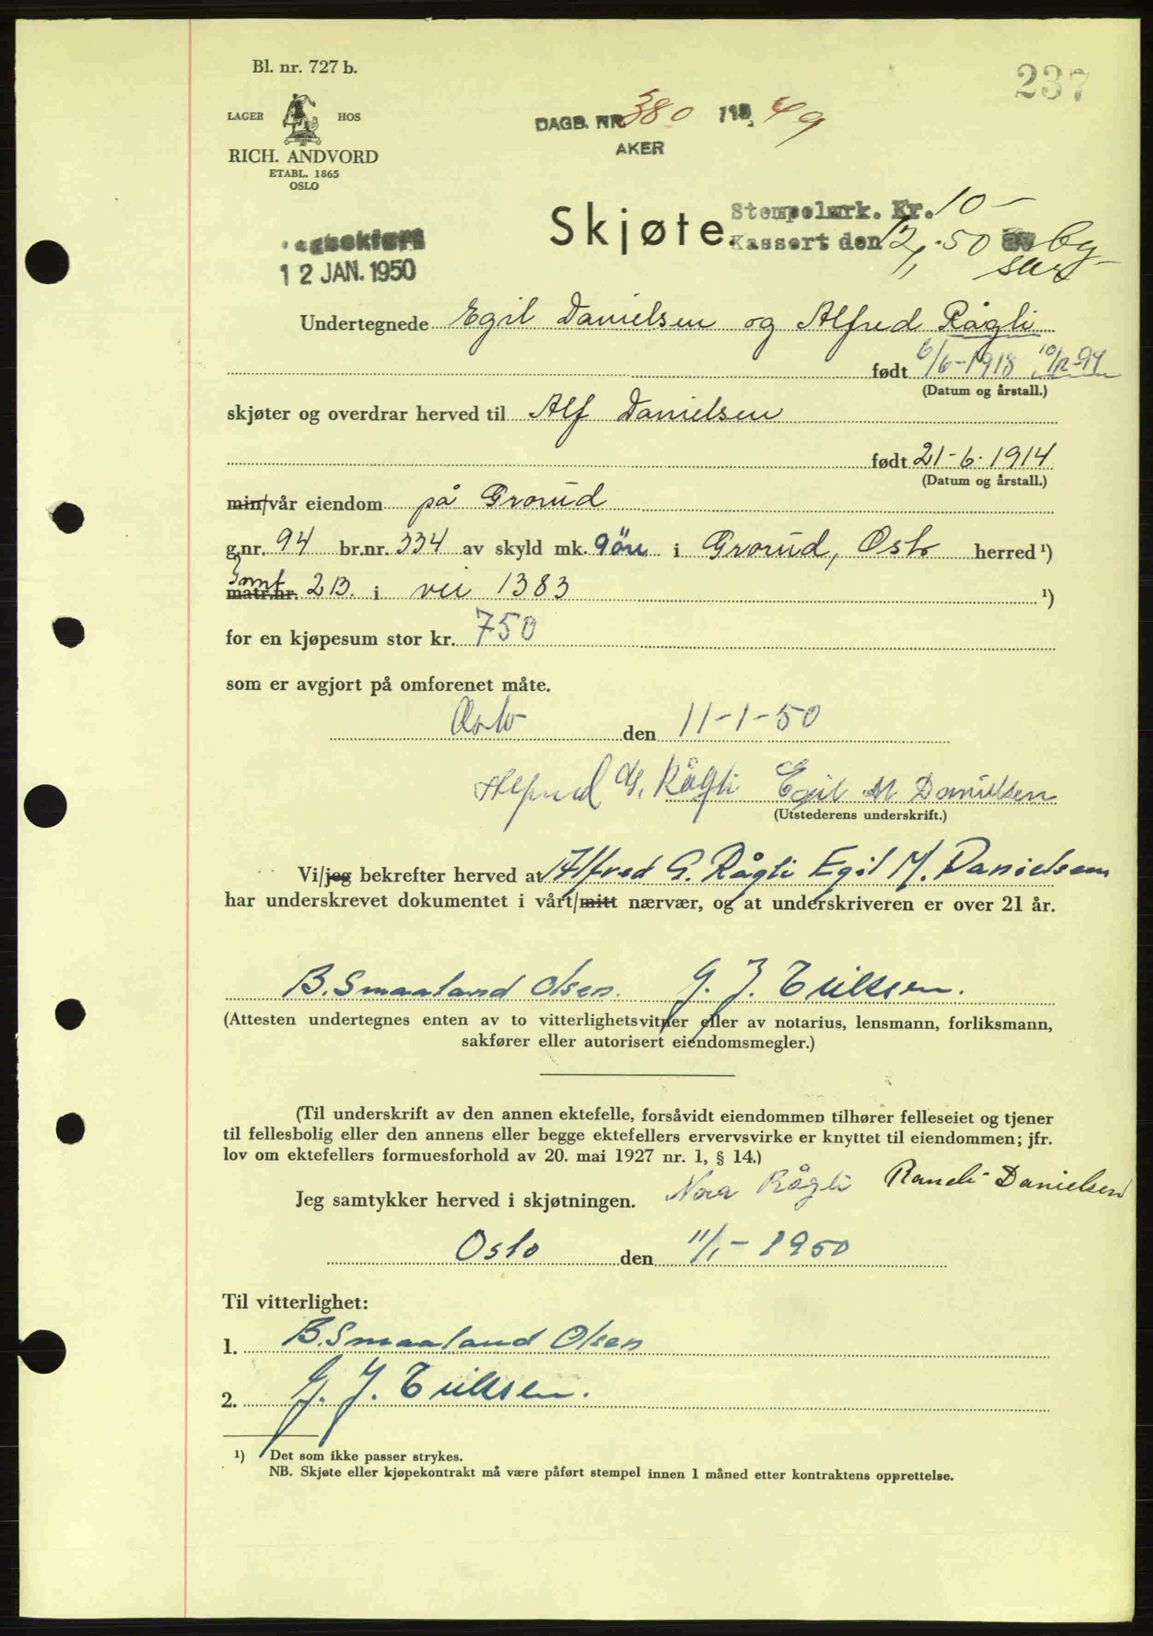 237
Bl. nr. 727 b.
LAGER HOS
RICH. ANDVORD
ETABL. 1865
OSLO
DAGB. NR 380 19 49
AKER
Skjøte
Stempelmrk. Kr. 10 –
Kassert den 12/1-50
12 JAN. 1950
Undertegnede Egil Danielsen og Alfred Rågli
født 6/6-1918 10/12-94
(Datum og årstall.)
skjøter og overdrar herved til Alf Danielsen
født 21-6-1914
(Datum og årstall.)
min/vår eiendom på Grorud
g.nr. 94 br.nr. 334 av skyld mk. 9 øre i Grorud, Oslo herred ¹)
Tomt
matr.nr. 2B. i vei 1383 ¹)
for en kjøpesum stor kr. 750
som er avgjort på omforenet måte.
Oslo den 11-1-50
Alfred G. Rågli Egil M Danielsen
(Utstederens underskrift.)
Vi/jeg bekrefter herved at Alfred G. Rågli Egil M. Danielsen
har underskrevet dokumentet i vårt/mitt nærvær, og at underskriveren er over 21 år.
B. Smaaland Olsen. G. J. Eriksen.
(Attesten undertegnes enten av to vitterlighetsvitner eller av notarius, lensmann, forliksmann,
sakfører eller autorisert eiendomsmegler.)
(Til underskrift av den annen ektefelle, forsåvidt eiendommen tilhører felleseiet og tjener
til fellesbolig eller den annens eller begge ektefellers ervervsvirke er knyttet til eiendommen; jfr.
lov om ektefellers formuesforhold av 20. mai 1927 nr. 1, § 14.)
Jeg samtykker herved i skjøtningen. Nora Rågli Randi Danielsen
Oslo den 11/1-1950
Til vitterlighet:
1. B. Smaaland Olsen
2. G. J. Eriksen.
¹) Det som ikke passer strykes.
NB. Skjøte eller kjøpekontrakt må være påført stempel innen 1 måned etter kontraktens opprettelse.